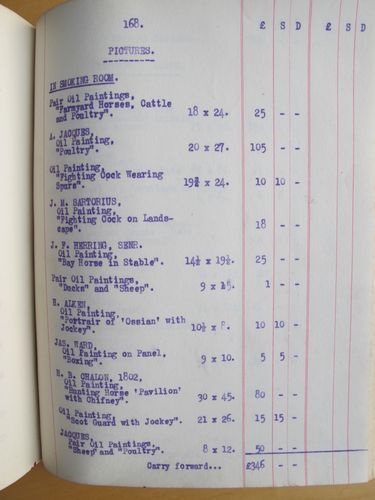 168.
£ S D £ S D
PICTURES.
IN SMOKING ROOM.
Pair Oil Paintings,
"Farmyard Horses, Cattle
and Poultry". 18 x 24. 25 - -
A. JACQUES,
Oil Painting,
"Poultry". 20 x 27. 105 - -
Oil Painting,
"Fighting Cock Wearing
Spurs". x 24. 10 10 -
J. M. SARTORIUS,
Oil Painting,
"Fighting Cock on Lands-
cape". 18 - -
J. F. HERRING, SENR.
Oil Painting,
"Bay Horse in Stable". 14½ x 19½. 25 - -
Pair Oil Paintings,
"Ducks" and "Sheep". 9 x 1 - -
H. ALKEN,
Oil Painting,
"Portrait of 'Ossian' with
Jockey". 10½ x 8. 10 10 -
JAS. WARD,
Oil Painting on Panel,
"Boxing". 9 x 10. 5 5 -
H. B. CHALON, 1802,
Oil Painting,
"Hunting Horse 'Pavilion'
with Chifney". 30 x 45. 80 - -
Oil Painting,
"Scot Guard with Jockey". 21 x 26. 15 15 -
JACQUES,
Pair Oil Paintings,
"Sheep" and "Poultry". 8 x 12. 50 - -
Carry forward... £346 - -